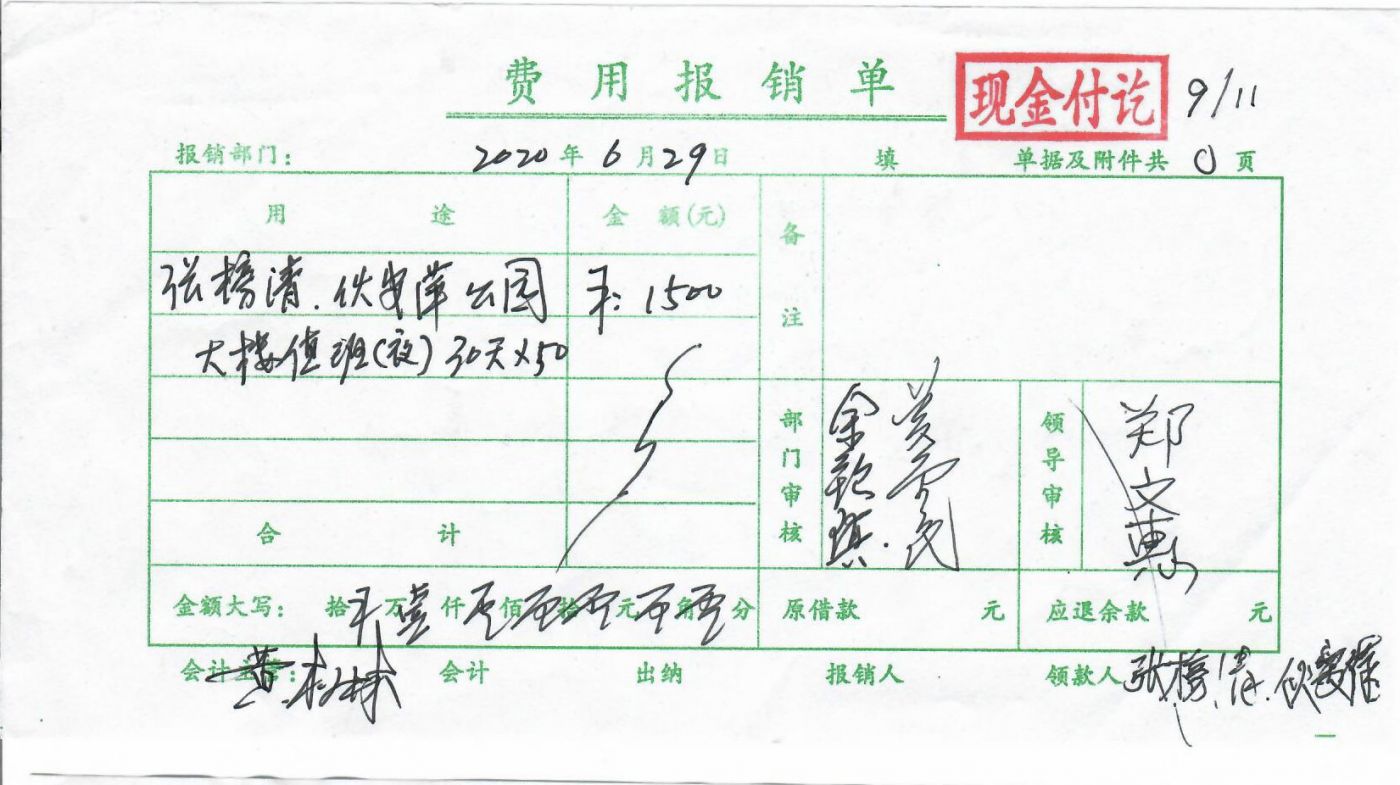 费用报销单
现金付讫 9/11
报销部门: 2020年6月29日 填 单据及附件共 0 页
用途 金额(元) 备注
张榜清.伙安萍公园 ¥:1500
大楼值班(夜)30天×50
部门审核 领导审核 郑文惠
合计
金额大写: 拾 万壹仟 佰 拾 元 角 分 原借款 元 应退余款 元
会计主管: 会计 出纳 报销人 领款人 张榜清.